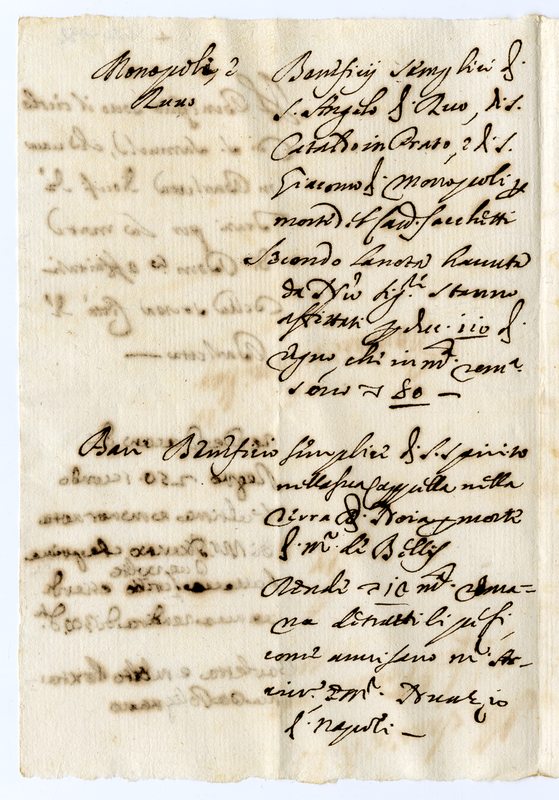 Monopoli, e
Ruvo
Beneficij semplici di
S. Angelo di Ruo, di S.
Cataldo in Prato, e di S.
Giacomo di Monopoli p
morte del Card. Sacchetti
Secondo la nota havuta
da Nro Sigre stanno
affittati p duc. 110 di
Regno che in mta roma
sono 80 —
Bari Beneficio semplice di S. Spirito
nella sua Cappella nella
Terra di Noia p morte
di mr de Bellis
Rende 10 mta Roma=
na detratti li pesi,
come avvisano mr Ar-
civ. e mr Nunzio
di Napoli —